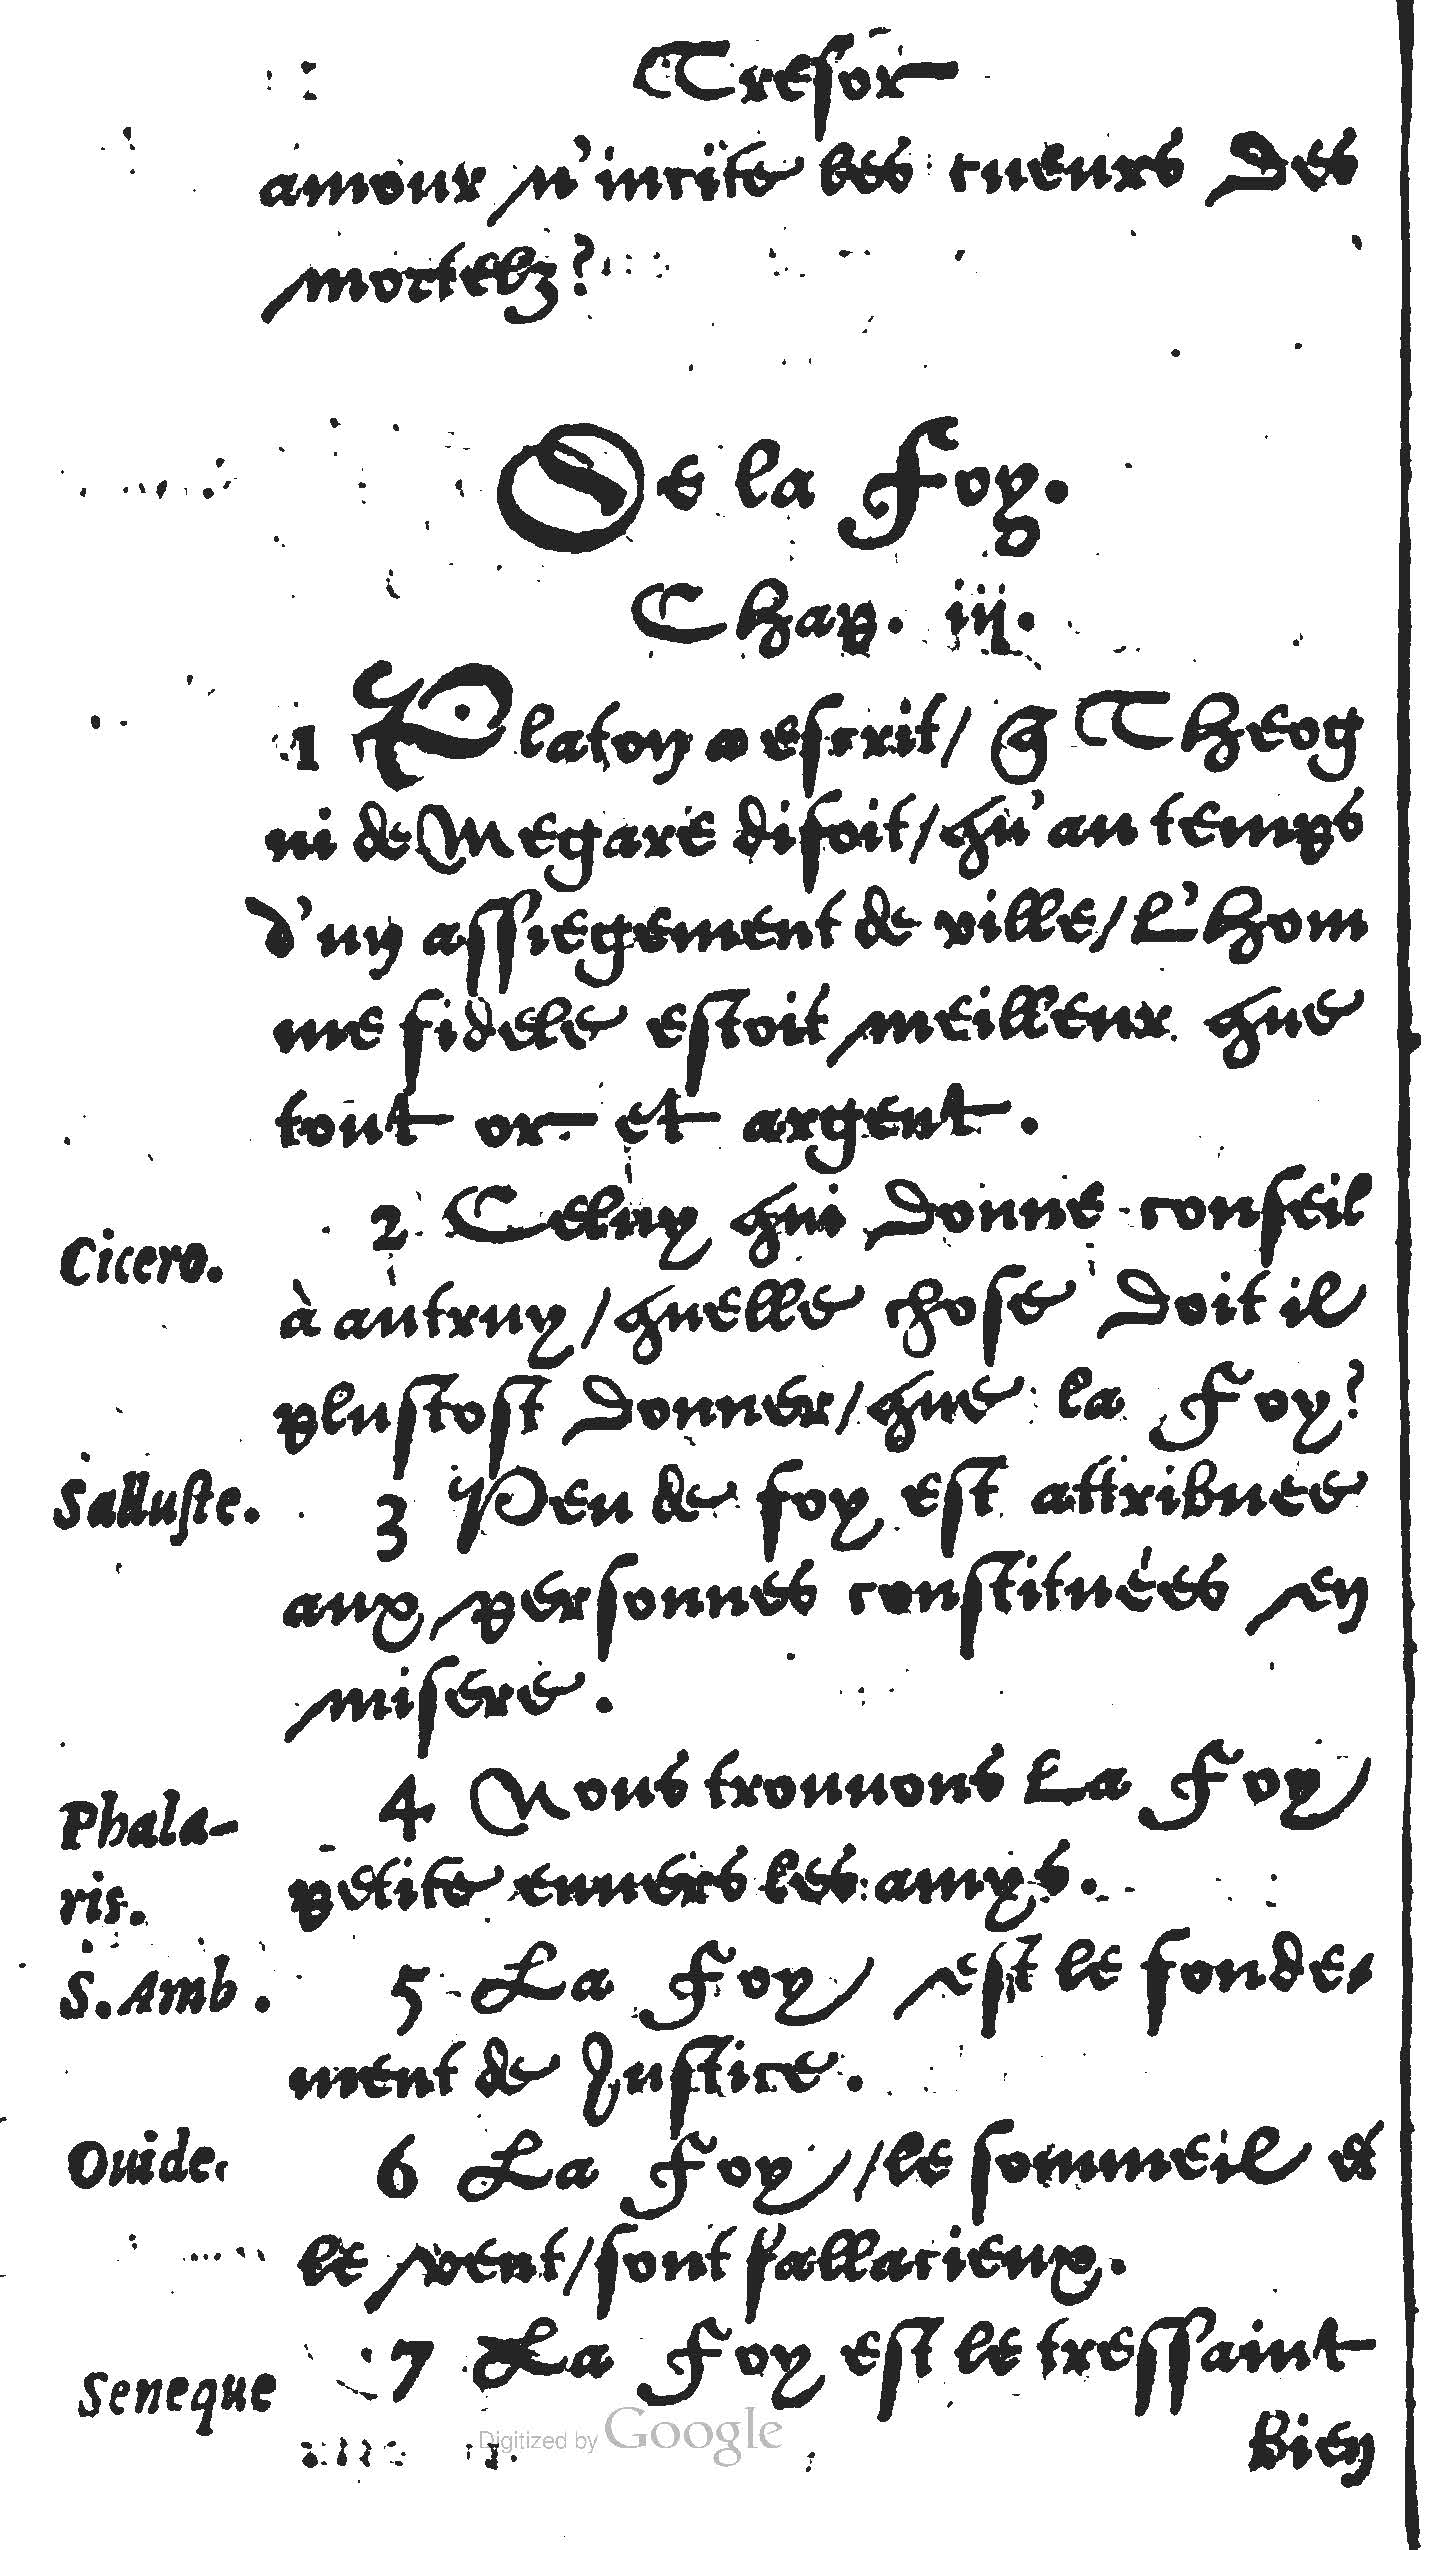 Tresor
amour n'incite les cueurs des
mortelz?
De la Foy.
Chap. iij.
1 Platon a escrit/ q̃ Theog
ni de Megare disoit/qu'au temps
d'un assiegement de ville/l'hom
me fidele estoit meilleur que
tout or et argent.
Cicero.
2 Celuy qui donne conseil
à autruy/quelle chose doit il
plustost donner/que la Foy?
Salluste.
3 Peu de foy est attribuee
aux personnes constituées en
misere.
Phala-
ris.
4 Nous trouuons la Foy
petite enuers les amys.
S. Amb.
5 La Foy est le fonde-
ment de Justice.
Ouide.
6 La Foy/le sommeil &
le vent/sont fallacieux.
Seneque
7 La Foy est le tressaint
Bien
Digitized by Google